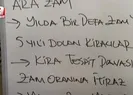 ARA ZAM
→ YILDA BİR DEFA ZAM?
5 YILI DOLAN KİRACILAR
→ KİRA TESPİT DAVASI
ZAM ORANINA İTİRAZ